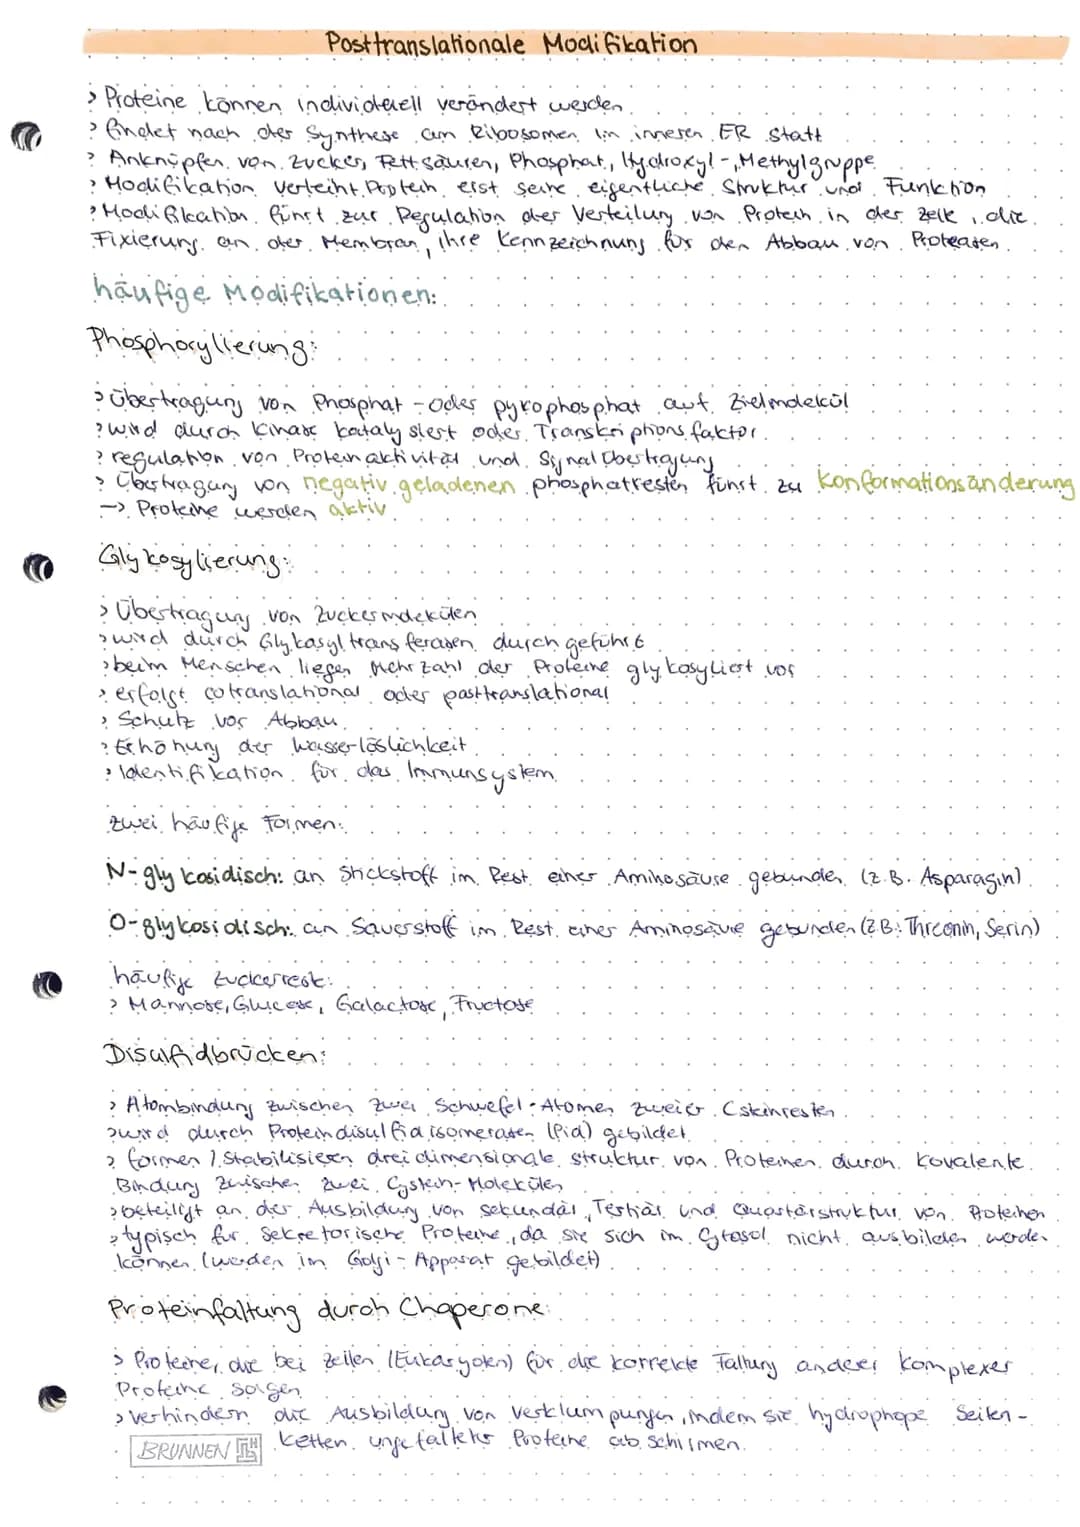 Posttranslationale Modifikation
> Proteine können individuell verändert werden
> findet nach der Synthese am Ribosomen im inneren ER statt
> Anknüpfen von Zucker, Fettsäuren, Phosphat, Hydroxyl-, Methylgruppe
> Modifikation verleiht Protein erst seine eigentliche Struktur und Funktion
> Modifikation führt zur Regulation der Verteilung von Protein in der Zelle, die
Fixierung an der Membran, ihre Kennzeichnung für den Abbau von Proteasen
häufige Modifikationen:
Phosphorylierung:
> Übertragung von Phosphat- oder pyrophosphat auf Zielmolekül
> wird durch Kinase katalysiert oder Transkriptionsfaktor
> regulation von Proteinaktivität und Signalübertragung
> Übertragung von negativ geladenen phosphatresten führt zu Konformationsänderung
-> Proteine werden aktiv
Glykosylierung:
> Übertragung von Zuckermolekülen
> wird durch Glykosyltransferasen durchgeführt
> beim Menschen liegen Mehrzahl der Proteine glykosyliert vor
> erfolgt cotranslational oder posttranslational
> Schutz vor Abbau
> Erhöhung der Wasserlöslichkeit
> Identifikation für das Immunsystem
zwei häufige Formen:
N-glykosidisch: an Stickstoff im Rest einer Aminosäure gebunden (z.B. Asparagin)
O-glykosidisch: an Sauerstoff im Rest einer Aminosäure gebunden (z.B: Threonin, Serin)
häufige Zuckerreste:
> Mannose, Glucose, Galactose, Fructose
Disulfidbrücken:
> Atombindung zwischen zwei Schwefel-Atomen zweier Csteinresten
> wird durch Proteindisulfidisomerasen (Pid) gebildet
> formen / Stabilisieren dreidimensionale Struktur von Proteinen durch kovalente
Bindung zwischen zwei Cystein-Molekülen
> beteiligt an der Ausbildung von sekundär, Tertiär und Quartärstruktur von Proteinen
> typisch für Sekretorische Proteine, da sie sich im Cytosol nicht ausbilden werden
können (werden im Golgi-Apparat gebildet)
Proteinfaltung durch Chaperone:
> Proteine, die bei Zellen (Eukaryoten) für die korrekte Faltung anderer komplexer
Proteine sorgen
> verhindern die Ausbildung von Verklumpungen, indem sie hydrophope Seiten-
ketten ungefalteter Proteine abschirmen
BRUNNEN